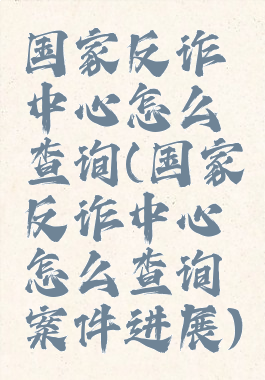 国家反诈
中心怎么
查询(国家
反诈中心
怎么查询
案件进展)